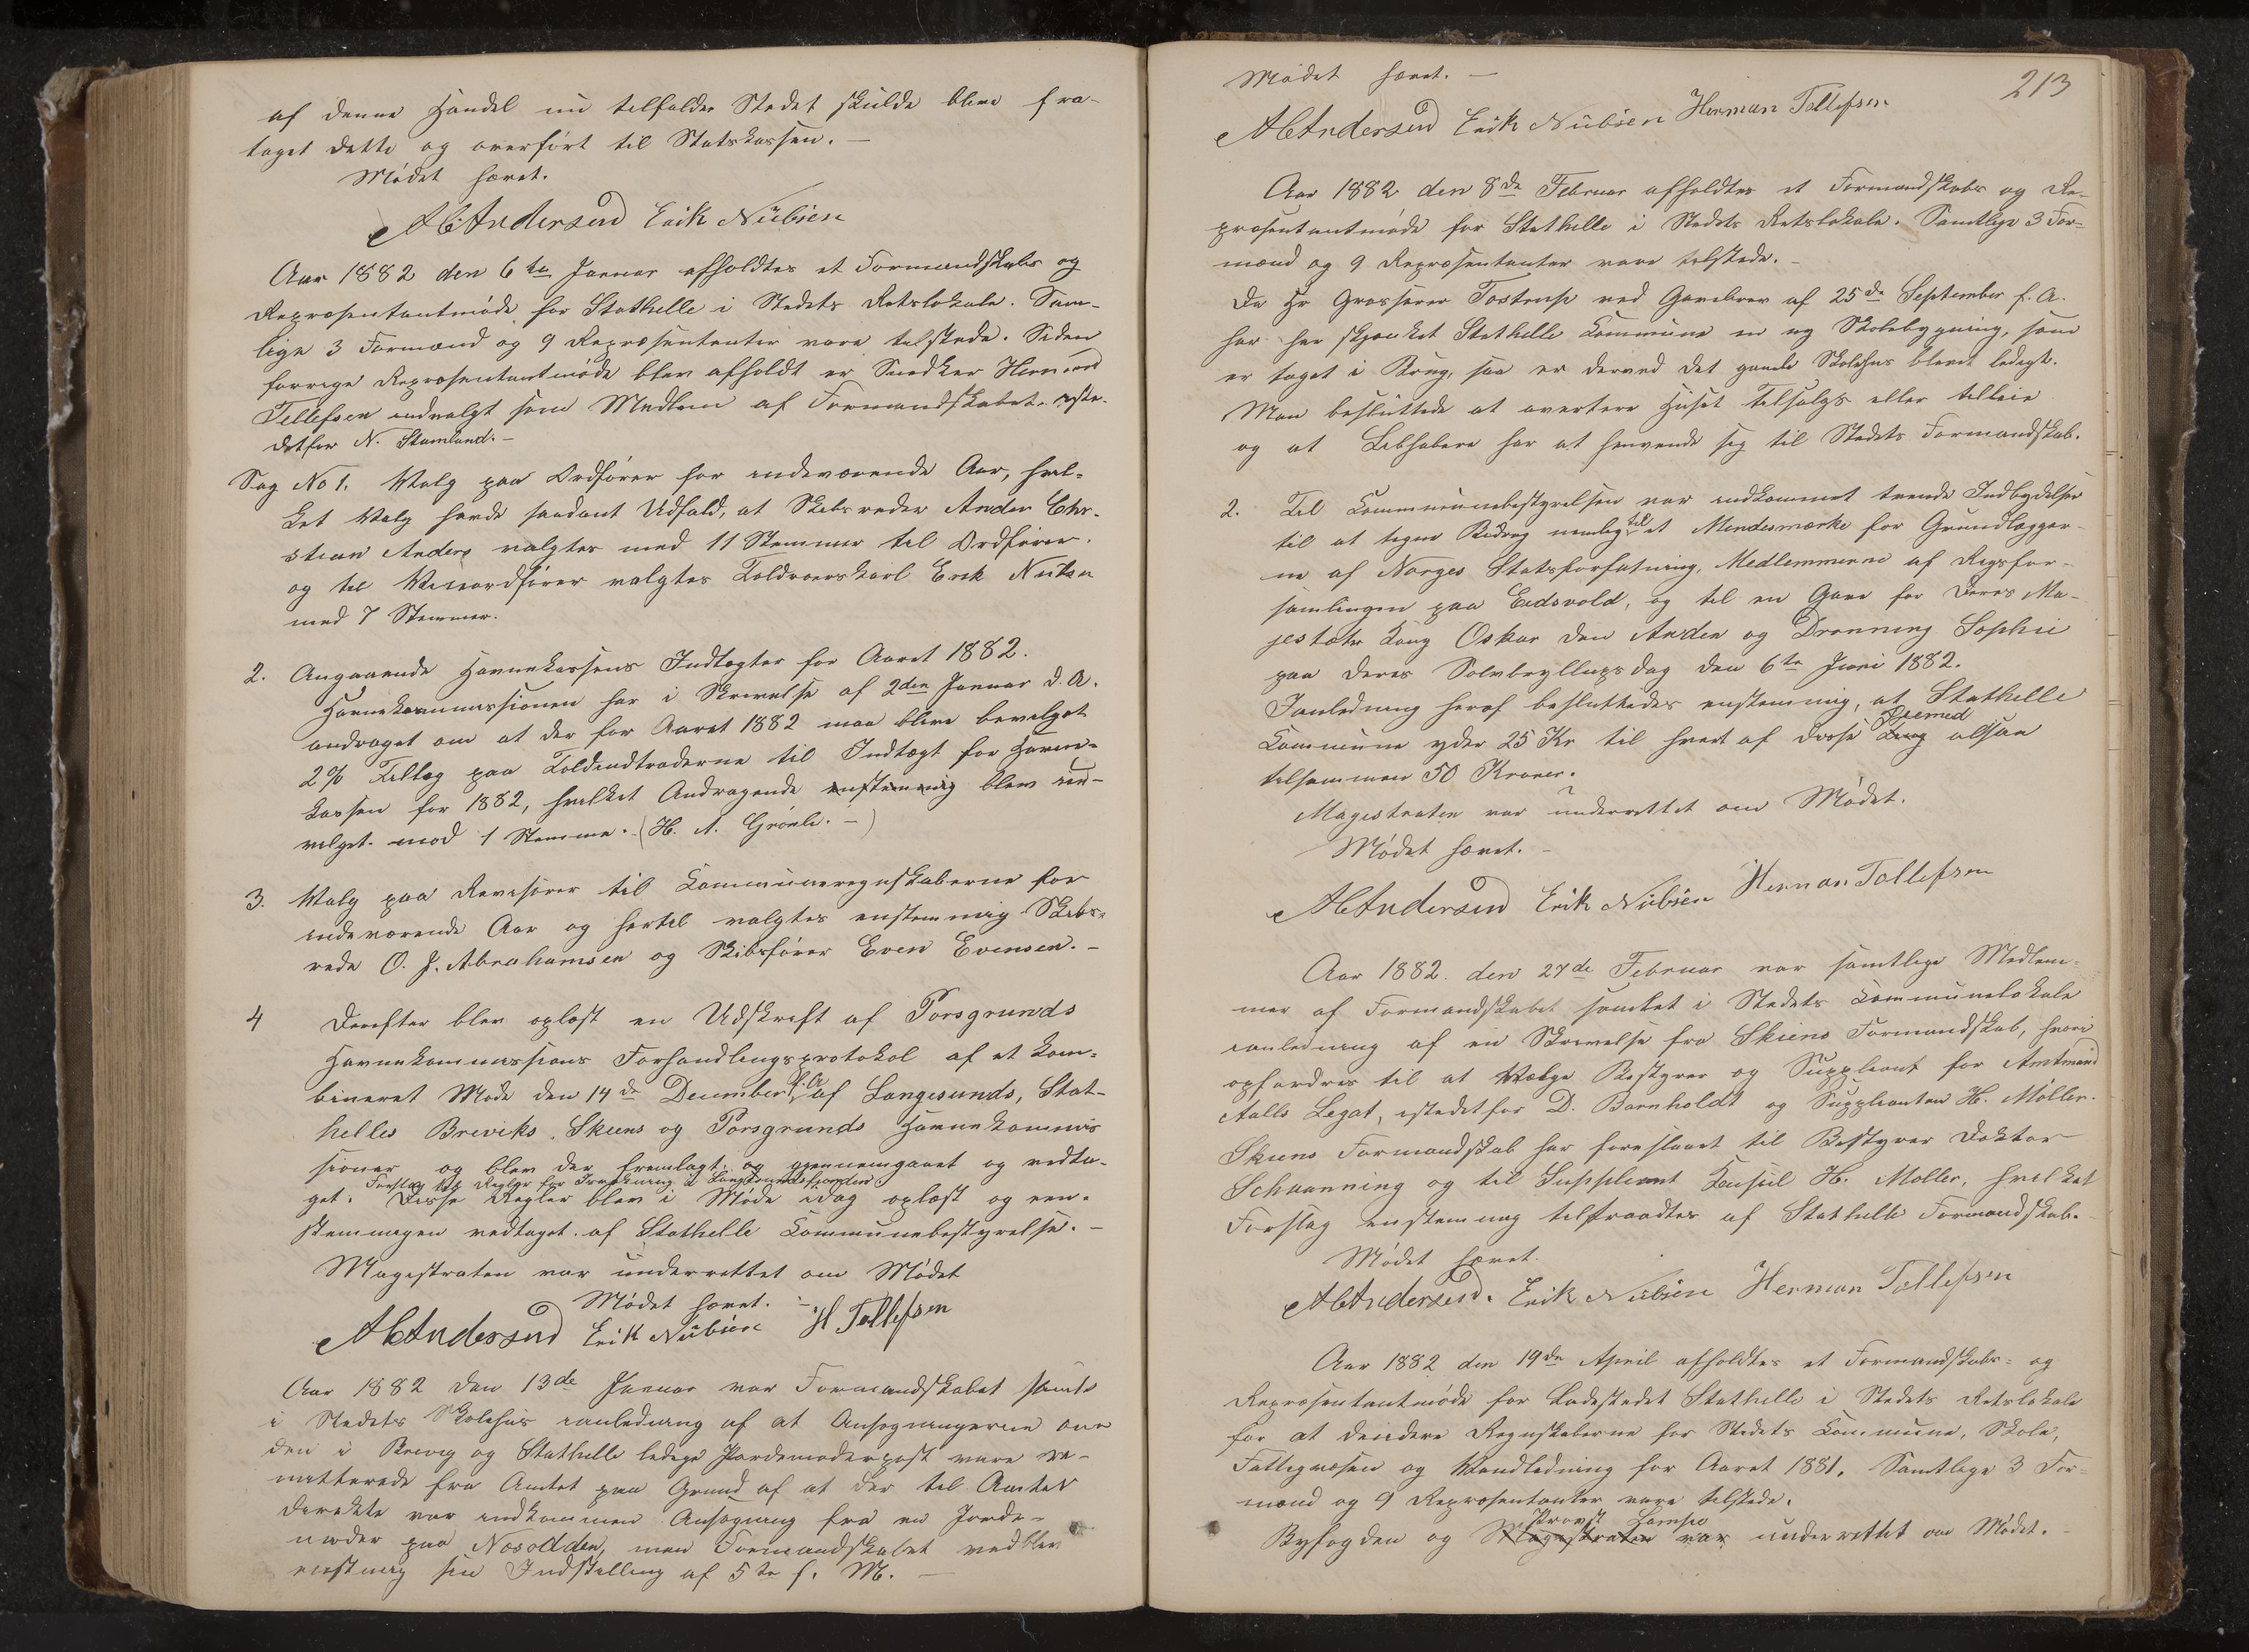 af denne Handel nu tilfalder Stedet skulde blive fra-
taget dette og overført til Statskassen. —
Mødet hævet.
AChAndersen Erik Nübsen
Aar 1882 den 6te Januar afholdtes et Formandskabs og
Repræsentantmøde for Stathelle i Stedets Retslokale. Sam-
lige 3 Formænd og 9 Repræsentanter vare tilstede. Siden
forrige Repræsentantmøde blev afholdt er Snedker Herman
Tellefsen indvalgt som Medlem af Formandskabet iste-
detfor N. Stamland. –
Sag No 1. Valg paa Ordfører for indeværende Aar, hvil-
ket Valg havde saadant Udfald, at Skibsreder Anders Chr-
stian Anders valgtes med 11 Stemmer til Ordfører.
og til Viceordfører valgtes Toldroerskarl Erik Nubsen
med 7 Stemmer.
2. Angaaende Havnekassens Indtægter for Aaret 1882.
Havnekommissionen har i Skrivelse af 2den Januar d. A.
andraget om at der for Aaret 1882 maa blive bevilget
2% Tillæg paa Toldindtraderne til Indtægt for Havne-
kassen for 1882, hvilket Andragende enstemmig blev in-
vilget mod 1 Stemme. (H. A. Grønli. –)
3. Valg paa Revisorer til Kommuneregnskaberne for
indeværende Aar og hertil valgtes enstemmig Skibs-
rede O. J. Abrahamsen og Skibsfører Even Evensen. –
4 Derefter blev oplæst en Udskrift af Porsgrunds
Havnekommissions Forhandlingsprotokol af et kom-
bineret Møde den 14de December f. A. af Langesunds, Stat-
helles Breviks, Skiens og Porsgrunds Havnekommis
sioner og blev der fremlagt og gjennemgaaet og vedta-
Forslag til Regler for Trafikering i Langesundsfjorden
get. Disse Regler blev i Møde idag oplæst og een-
stemmigen vedtaget af Stathelle Kommunebestyrelse. –
Magistraten var underrettet om Mødet
Mødet hævet. –
AChAndersen Erik Nübsen H Tellefsen
Aar 1882 den 13de Januar var Formandskabet samlet
i Stedets Skolehus ianledning af at Ansøgningerne om
den i Brevig og Stathelle ledige Jordemoderpost vare re-
mitterede fra Amtet paa Grund af at der til Amtet
direkte var indkommen Ansøgning fra en Jorde-
moder paa Næsodden, men Formandskabet vedblev
enstemmig sin Indstilling af 5te f. M. —
213
Mødet hævet. —
AChAndersen Erik Nübsen Herman Tellefsen
Aar 1882 den 8de Februar afholdtes et Formandskabs og Re-
præsentantmøde for Stathelle i Stedets Retslokale. Samtlige 3 For-
mænd og 9 Repræsentanter vare tilstede. –
Da Hr Grosserer Tostrup ved Gavebrev af 25de September f. A.
har her skjænket Stathelle Kommune en ny Skolebygning, som
er taget i Brug, saa er derved det gamle Skolehus blevet ledigt.
Man besluttede at avertere Huset tilsalgs eller tilleie
og at Lebhabere har at henvende sig til Stedets Formandskab.
2. Til Kommunebestyrelsen var indkommet tvende Indbydelser
til at tegne Bidrag nemlig til et Mindesmærke for Grundlægger-
ne af Norges Statsforfatning, Medlemmerne af Rigsfor-
samlingen paa Eidsvold, og til en Gave for Deres Ma-
jestæter Kong Oskar den Anden og Dronning Sophie
paa deres Sølvbryllupsdag den 6te Juni 1882.
Ianledning heraf besluttedes enstemmig, at Stathelle
Kommune yder 25 Kr til hvert af disse Øiemed altsaa
tilsammen 50 Kroner.
Magistraten var underrettet om Mødet.
Mødet hævet. –
AChAndersen Erik Nübsen Herman Tellefsen
Aar 1882 den 27de Februar var samtlige Medlem-
mer af Formandskabet samlet i Stedets Kommunelokale
ianledning af en Skrivelse fra Skiens Formandskab, hvori
opfordres til at Vælge Bestyrer og Suppleant for Amtmand
Aalls Legat, istedetfor D. Barnholdt og Suppleanten H. Møller.
Skiens Formandskab har foreslaaet til Bestyrer Doktor
Schaanning og til Suppleant Konsul H. Møller, hvilket
Forslag enstemmig tiltraadtes af Stathelle Formandskab.
Mødet hævet.
AChAndersen. Erik Nübsen Herman Tellefsen
Aar 1882 den 19de April afholdtes et Formandskabs- og
Repræsentantmøde for Ladestedet Stathelle i Stedets Retslokale
for at decidere Regnskaberne for Stedets Kommune, Skole,
Fattigvæsen og Vandledning for Aaret 1881. Samtlige 3 For-
mænd og 9 Repræsentanter vare tilstede.
Provst
Byfogden og Magistraten var underrettet om Mødet.